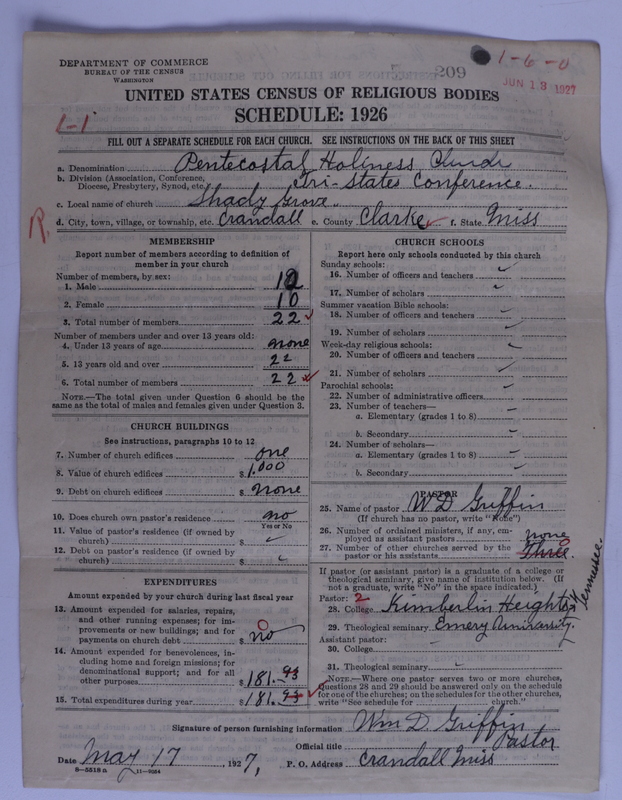 DEPARTMENT OF COMMERCE
BUREAU OF THE CENSUS
WASHINGTON
1-6-0
209
JUN 13 1927
UNITED STATES CENSUS OF RELIGIOUS BODIES
SCHEDULE: 1926
1-1
FILL OUT A SEPARATE SCHEDULE FOR EACH CHURCH. SEE INSTRUCTIONS ON THE BACK OF THIS SHEET
a. Denomination Pentecostal Holiness Church
b. Division (Association, Conference, Diocese, Presbytery, Synod, etc.) Tri-States Conference.
c. Local name of church Shady Grove
R. d. City, town, village, or township, etc. Crandall e. County Clarke f. State Miss
MEMBERSHIP
Report number of members according to definition of
member in your church
Number of members, by sex:
1. Male 12
2. Female 10
3. Total number of members 22
Number of members under and over 13 years old:
4. Under 13 years of age none
5. 13 years old and over 22
6. Total number of members 22
NOTE.—The total given under Question 6 should be
same as the total of males and females given under Question 3.
CHURCH BUILDINGS
See instructions, paragraphs 10 to 12
7. Number of church edifices one
8. Value of church edifices $ 1,000
9. Debt on church edifices $ none
10. Does church own pastor's residence no
Yes or No
11. Value of pastor's residence (if owned by
church) $
12. Debt on pastor's residence (if owned by
church) $
EXPENDITURES
Amount expended by your church during last fiscal year
13. Amount expended for salaries, repairs,
and other running expenses; for im-
provements or new buildings; and for
payments on church debt $ no 0
14. Amount expended for benevolences, in-
cluding home and foreign missions; for
denominational support; and for all
other purposes $ 181.93
15. Total expenditures during year $ 181.93
CHURCH SCHOOLS
Report here only schools conducted by this church
Sunday schools:
16. Number of officers and teachers
17. Number of scholars
Summer vacation Bible schools:
18. Number of officers and teachers
19. Number of scholars
Week-day religious schools:
20. Number of officers and teachers
21. Number of scholars
Parochial schools:
22. Number of administrative officers
23. Number of teachers—
a. Elementary (grades 1 to 8)
b. Secondary
24. Number of scholars—
a. Elementary (grades 1 to 8)
b. Secondary
PASTOR
25. Name of pastor W D Griffin
(If church has no pastor, write "None")
26. Number of ordained ministers, if any, em-
ployed as assistant pastors none
27. Number of other churches served by the
pastor or his assistants Three
If pastor (or assistant pastor) is a graduate of a college or
theological seminary, give name of institution below. (If
not a graduate, write "No" in the space indicated.)
Pastor: 2
28. College Kimberlin Heights, Tennessee
29. Theological seminary Emery University
Assistant pastor:
30. College
31. Theological seminary
NOTE.—Where one pastor serves two or more churches,
Questions 28 and 29 should be answered only on the schedule
for one of the churches; on the schedules for the other churches,
write "See schedule for church."
Signature of person furnishing information Wm D. Griffin
Official title Pastor
Date May 17, 1927, P. O. Address Crandall Miss
8—5518 a 11—9054